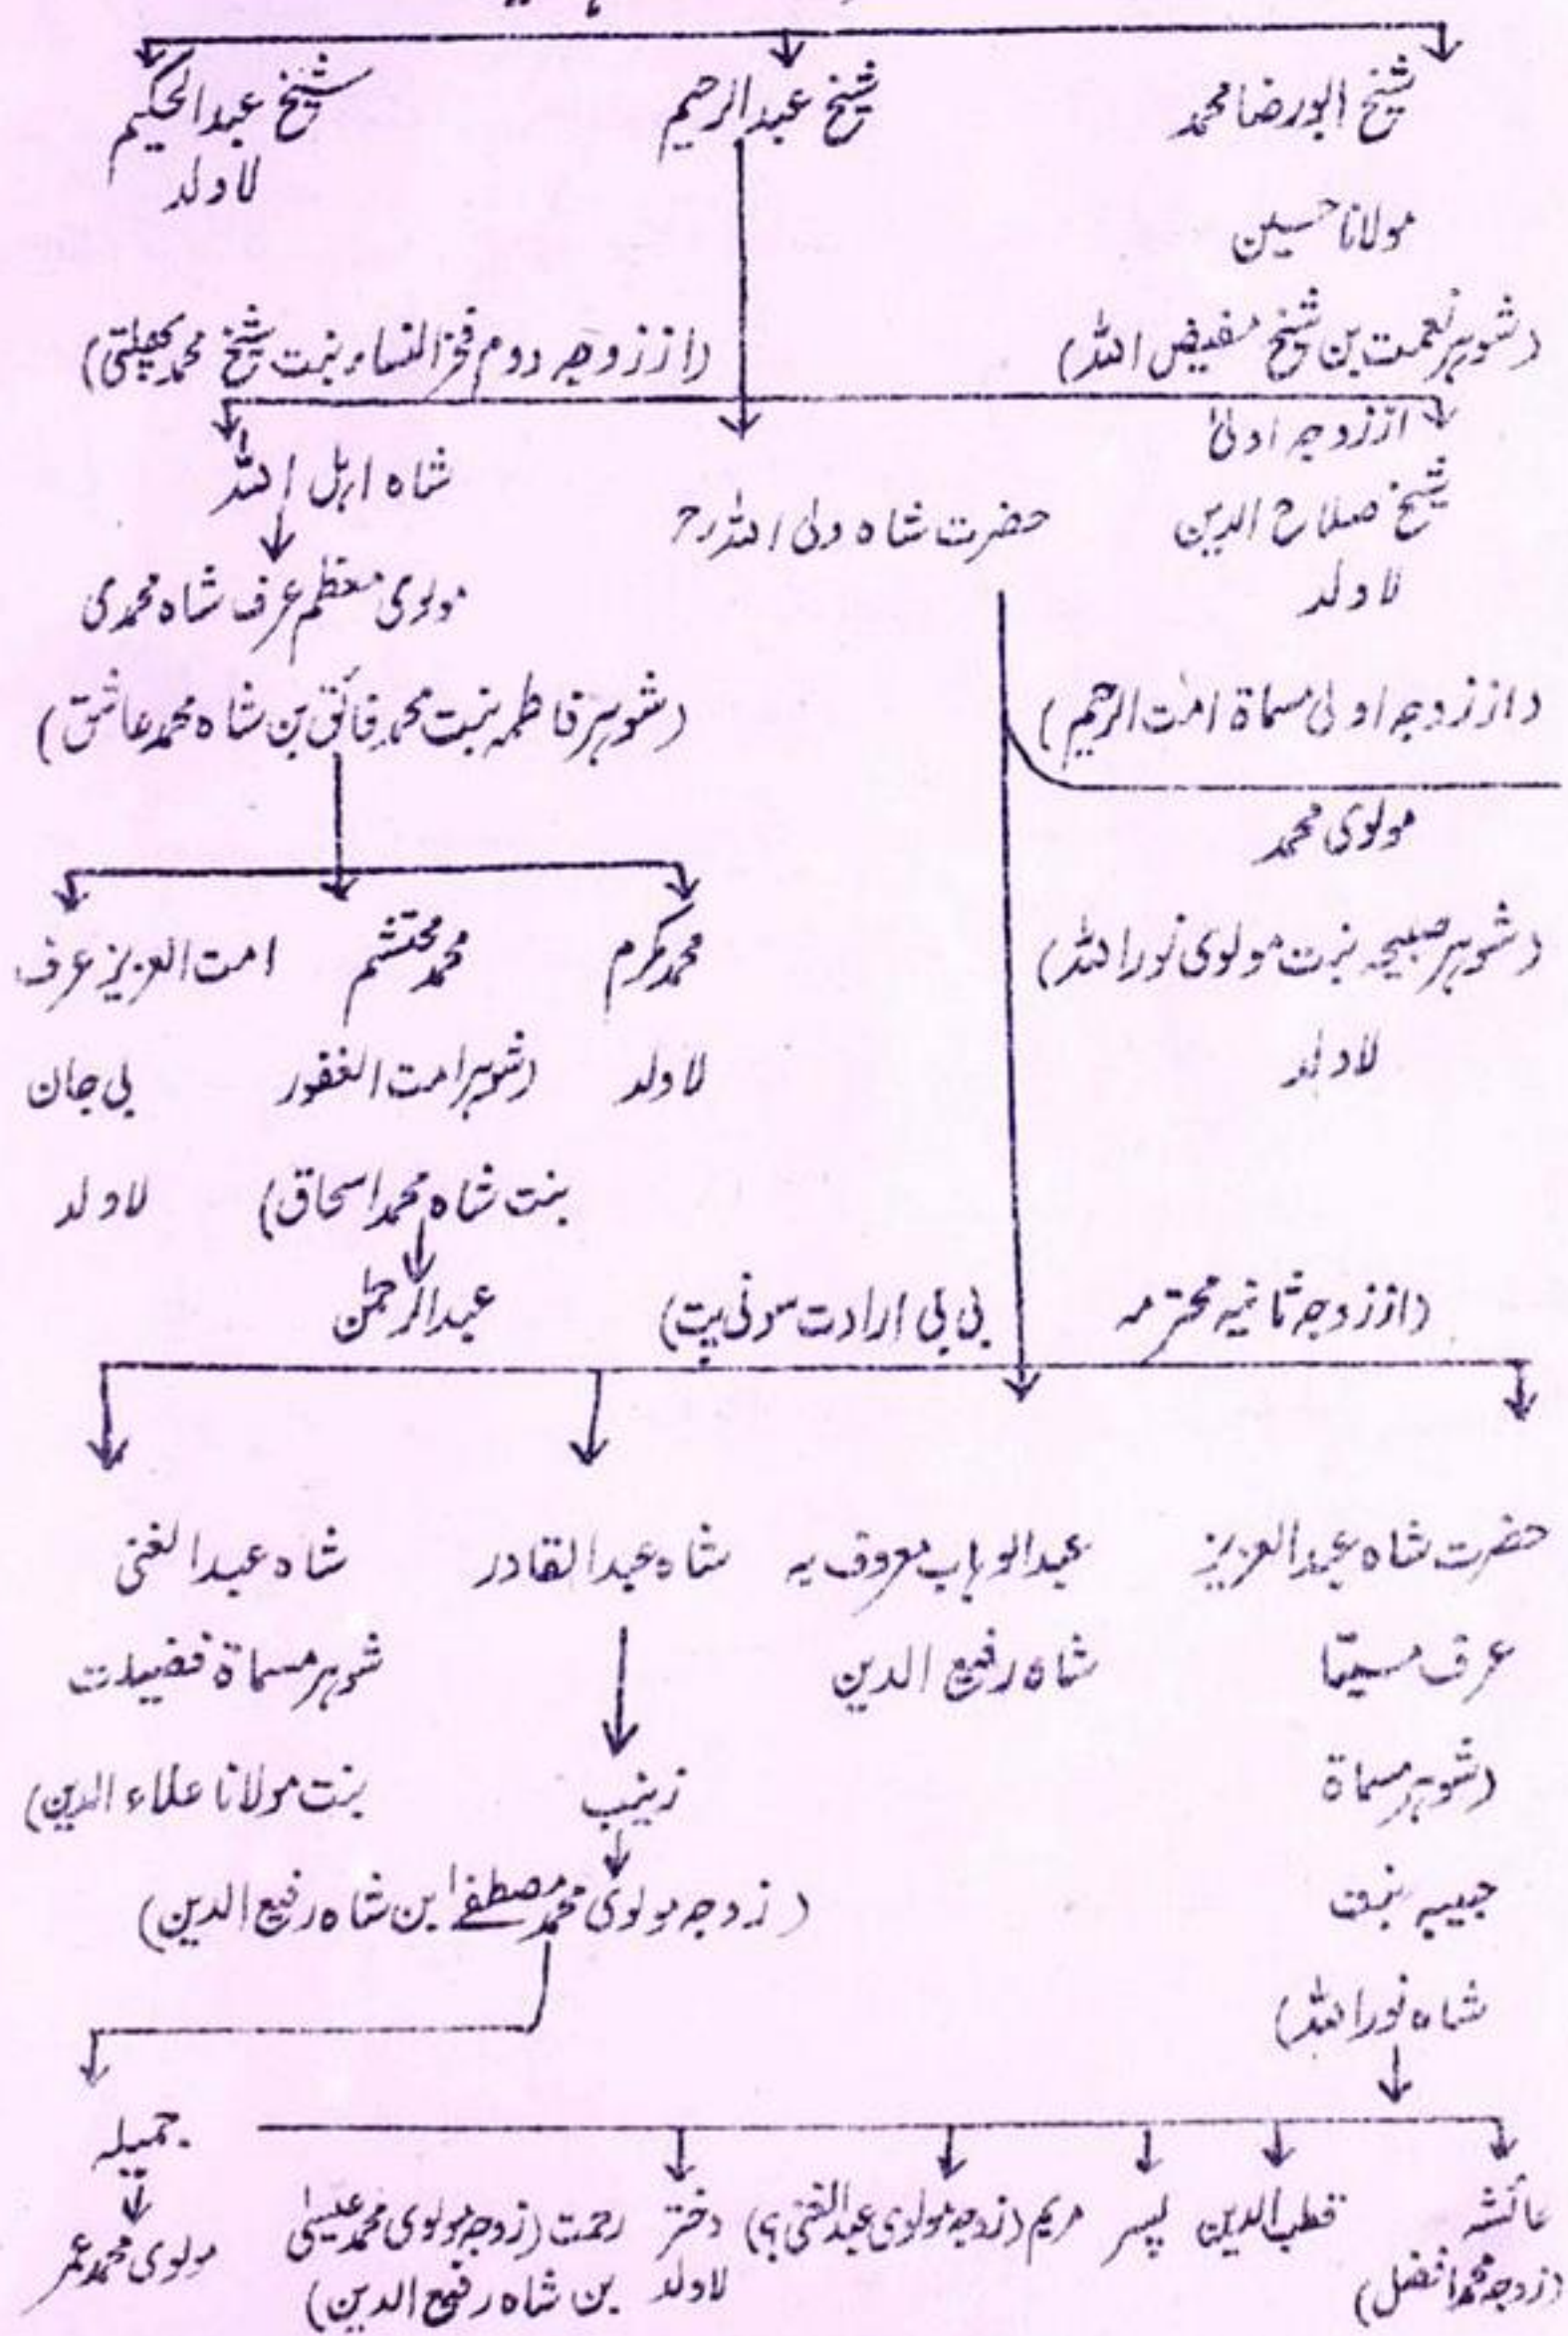 شیخ ابو رضا محمد
شیخ عبدالرحیم
شیخ عبدالحکیم
لاولد
مولانا حسین
(شوہر نعمت بن شیخ مفیض اللہ)
(از زوجہ دوم فخر النساء بنت شیخ محمد پھلتی)
از زوجہ اولیٰ
شیخ صلاح الدین
لاولد
حضرت شاہ ولی اللہ رح
شاہ اہل اللہ
مولوی معظم عرف شاہ محمدی
(شوہر فاطمہ بنت محمد فائق بن شاہ محمد عاشق)
(از زوجہ اولیٰ مسماۃ امت الرحیم)
مولوی محمد
(شوہر صبیحہ بنت مولوی نور اللہ)
لاولد
محمد مکرم
لاولد
محمد محتشم
(شوہر امت الغفور
بنت شاہ محمد اسحاق)
عبدالرحمٰن
امت العزیز عرف
بی جان
لاولد
(از زوجہ ثانیہ محترمہ
بی بی ارادت سونی پت)
حضرت شاہ عبدالعزیز
عرف مسیتا
(شوہر مسماۃ
حبیبہ بنت
شاہ نور اللہ)
عبدالوہاب معروف بہ
شاہ رفیع الدین
شاہ عبدالقادر
زینب
(زوجہ مولوی محمد مصطفےٰ ابن شاہ رفیع الدین)
شاہ عبدالغنی
شوہر مسماۃ فضیلت
بنت مولانا علاء الدین)
جمیلہ
مولوی محمد عمر
عائشہ
(زوجہ محمد افضل)
قطب الدین
پسر
مریم (زوجہ مولوی عبدالغنی ؟)
دختر
لاولد
رحمت (زوجہ مولوی محمد عیسیٰ
بن شاہ رفیع الدین)